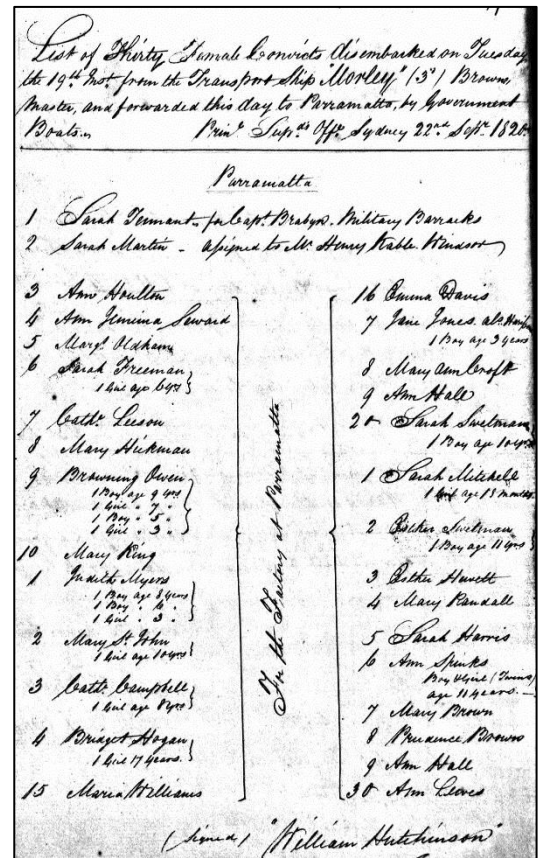 List of Thirty Female Convicts disembarked on Tuesday
the 19th Inst. from the Transport Ship "Morley" (3d) Brown
Master, and forwarded this day to Parramatta, by Government
Boats.. Prinl. Supds. Offe. Sydney 22nd. Septr. 1820
Parramatta
1 Sarah Tennant - for Capt. Brabyn. Military Barracks
2 Sarah Martin - assigned to Mr. Henry Kable Windsor
For the Factory at Parramatta
3 Ann Houlton
4 Ann Jemima Seward
5 Margt. Oldham
6 Sarah Freeman
1 Girl age 6 yrs
7 Cathe. Leeson
8 Mary Hickman
9 Browning Owen
1 Boy age 9 yrs
1 Girl " 7 "
1 Boy " 5 "
1 Girl " 3 "
10 Mary King
1 Judith Myers
1 Boy age 8 years
1 Boy " 6 "
1 Girl " 3 "
2 Mary St. John
1 Girl age 10 yrs
3 Cathe. Campbell
1 Girl age 8 yrs
4 Bridget Hogan
1 Girl 17 years.
15 Maria Williams
16 Emma Davis
7 Jane Jones als.
1 Boy age 3 years
8 Mary Ann Croft
9 Ann Hall
20 Sarah Swetman
1 Boy age 10 yrs
1 Sarah Mitchell
1 Girl age 18 months
2 Esther Swetman
1 Boy age 11 yrs
3 Esther Huvett
4 Mary Randall
5 Sarah Harris
6 Ann Spinks
Boy & Girl (Twins)
age 11 years. -
7 Mary Brown
8 Prudence Brown
9 Ann Hall
30 Ann Leeves
(signed) "William Hutchinson"